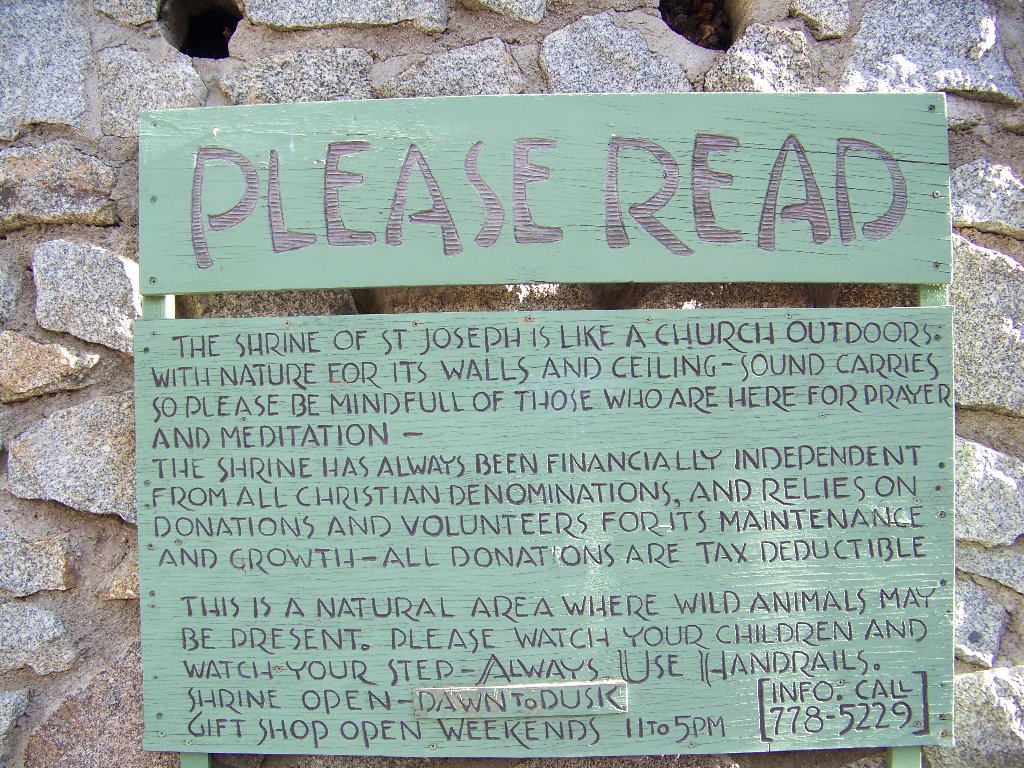 PLEASE READ
THE SHRINE OF ST JOSEPH IS LIKE A CHURCH OUTDOORS.
WITH NATURE FOR ITS WALLS AND CEILING - SOUND CARRIES
SO PLEASE BE MINDFULL OF THOSE WHO ARE HERE FOR PRAYER
AND MEDITATION -
THE SHRINE HAS ALWAYS BEEN FINANCIALLY INDEPENDENT
FROM ALL CHRISTIAN DENOMINATIONS, AND RELIES ON
DONATIONS AND VOLUNTEERS FOR ITS MAINTENANCE
AND GROWTH - ALL DONATIONS ARE TAX DEDUCTIBLE
THIS IS A NATURAL AREA WHERE WILD ANIMALS MAY
BE PRESENT. PLEASE WATCH YOUR CHILDREN AND
WATCH YOUR STEP - ALWAYS USE HANDRAILS.
SHRINE OPEN - DAWN TO DUSK
GIFT SHOP OPEN WEEKENDS 11 TO 5PM
[INFO. CALL
778-5229]